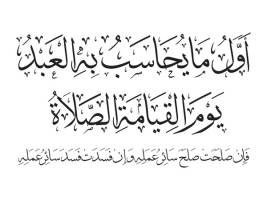 أَوَّلُ مَا يُحَاسَبُ بِهِ الْعَبْدُ
يَوْمَ الْقِيَامَةِ الصَّلَاةُ
فَإِن صَلَحَت صَلَحَ سَائِرُ عَمَلِهِ وَإِن فَسَدَت فَسَدَ سَائِرُ عَمَلِهِ